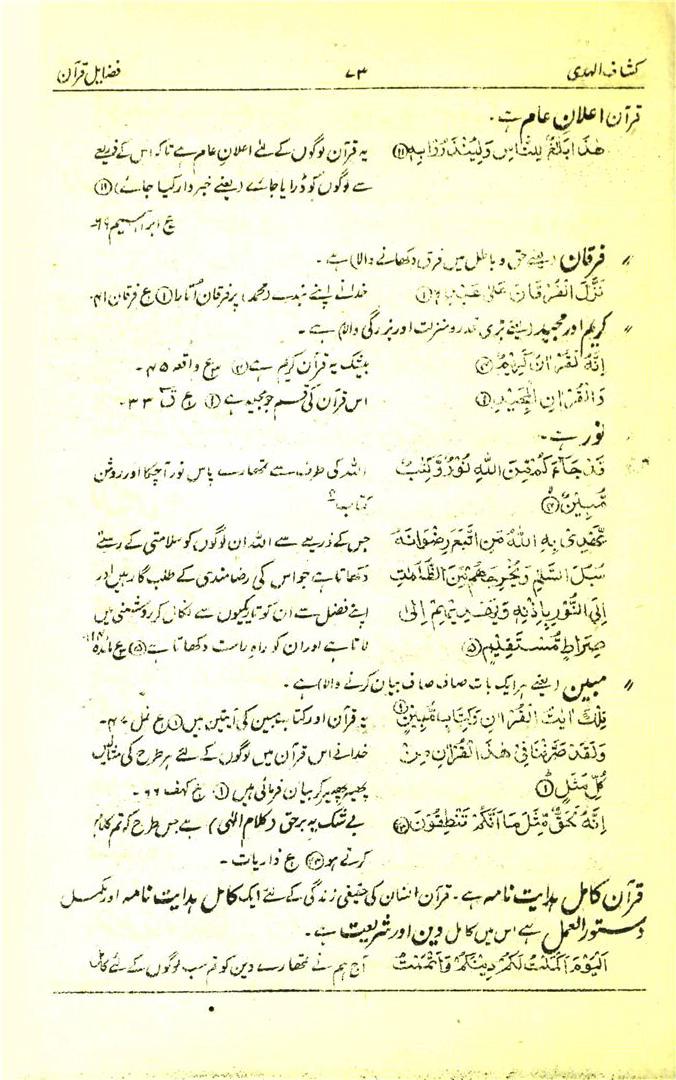 کشاف الہدیٰ ۷۳ فضایل قرآن
قرآن اعلانِ عام ہے۔
هٰذَا بَلٰغٌ لِلنَّاسِ وَلِيُنْذَرُوْا بِهٖ یہ قرآن لوگوں کے لئے اعلانِ عام ہے تاکہ اس کے ذریعے
سے لوگوں کو ڈرایا جائے (یعنے خبردار کیا جائے)
ع ابراہیم
〃 فرقان (یعنے حق و باطل میں فرق دکھانے والا) ہے۔
نَزَّلَ الْفُرْقَانَ عَلٰى عَبْدِهٖ خدا نے اپنے بندے (محمدؐ) پر فرقان اتارا ① ع فرقان ۴۱
〃 کریم اور مجید (یعنے بڑی قدر و منزلت اور بزرگی والا) ہے۔
اِنَّهٗ لَقُرْاٰنٌ كَرِيْمٌ بیشک یہ قرآن کریم ہے ع واقعہ ۴۵۔
وَالْقُرْاٰنِ الْمَجِيْدِ ① اس قرآن کی قسم جو مجید ہے ① ع قٓ ۳۳۔
نور ہے۔
قَدْ جَآءَكُمْ مِّنَ اللّٰهِ نُوْرٌ وَّكِتٰبٌ اللہ کی طرف سے تمھارے پاس نور آچکا اور روشن
مُّبِيْنٌ کتاب
يَّهْدِىْ بِهِ اللّٰهُ مَنِ اتَّبَعَ رِضْوَانَهٗ جس کے ذریعے سے اللہ ان لوگوں کو سلامتی کے رستے
سُبُلَ السَّلٰمِ وَيُخْرِجُهُمْ مِّنَ الظُّلُمٰتِ دکھاتا ہے جو اس کی رضامندی کے طلب گار ہیں اور
اِلَى النُّوْرِ بِاِذْنِهٖ وَيَهْدِيْهِمْ اِلٰى اپنے فضل سے ان کو تاریکیوں سے نکال کر روشنی میں
صِرَاطٍ مُّسْتَقِيْمٍ لاتا ہے اور ان کو راہِ راست دکھاتا ہے ع مائدہ
〃 مبین (یعنے ہر ایک بات صاف صاف بیان کرنے والا) ہے۔
تِلْكَ اٰيٰتُ الْقُرْاٰنِ وَكِتَابٍ مُّبِيْنٍ ① یہ قرآن اور کتاب مبین کی آیتیں ہیں ① ع نمل ۴۶۔
وَلَقَدْ صَرَّفْنَا فِىْ هٰذَا الْقُرْاٰنِ مِنْ خدا نے اس قرآن میں لوگوں کے لئے ہر طرح کی مثالیں
كُلِّ مَثَلٍ ① پھیر پھیر کر بیان فرمائی ہیں ① ع کہف ۶۶۔
اِنَّهٗ لَحَقٌّ مِّثْلَ مَا اَنَّكُمْ تَنْطِقُوْنَ بے شک یہ برحق (کلامِ الٰہی) ہے جس طرح کہ تم کلام
کرتے ہو ع ذاریات۔
قرآن کامل ہدایت نامہ ہے۔ قرآن انسان کی حقیقی زندگی کے لئے ایک کامل ہدایت نامہ اور مکمل
دستور العمل ہے اس میں کامل دین اور شریعت ہے۔
اَلْيَوْمَ اَكْمَلْتُ لَكُمْ دِيْنَكُمْ وَاَتْمَمْتُ آج ہم نے تمھارے دین کو تم سب لوگوں کے لئے کامل